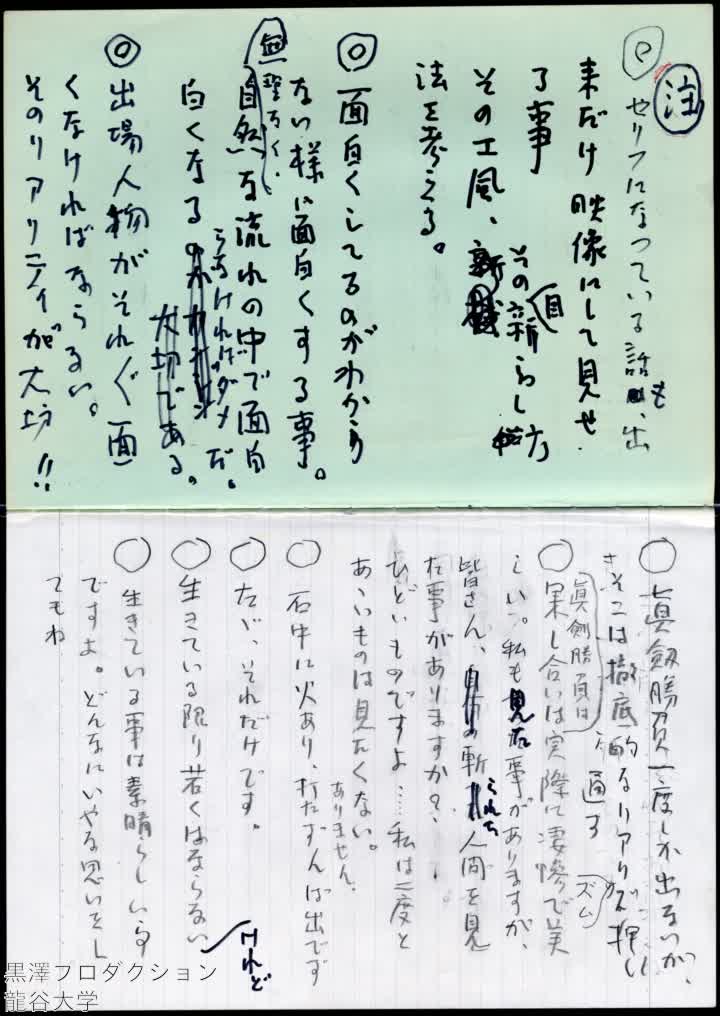 注
◎ セリフになっている話も、出
来だけ映像にして見せ
る事
その工風、その新らし
法を考える。
◎ 面白くしてるのがわから
ない様に面白くする事。
無理なく、
自然な流れの中で面白
白くなる
らなければダメだ。
大切である。
◎ 出場人物がそれぞれ面
くなければならない。
そのリアリティが大切!!
○ 真剣勝負一度しか出ないが、
そこは徹底的なリアリズム
押し通す
○ 真剣勝負は
果し合いは実際は凄惨で美
しい。私も見た事がありますが、
皆さん、斬られた人間を見
た事がありますか?
ひどいものですよ……私は二度と
あゝいうものは見たくない。
ありません
○ 石中に火あり、打たずんば出です
○ たゞ、それだけです。
○ 生きている限り若くはならない
けれど
○ 生きている事は素晴らしい
ですよ。どんなにいやな思いをし
てもね
黒澤プロダクション
龍谷大学